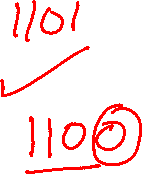 1101
1100